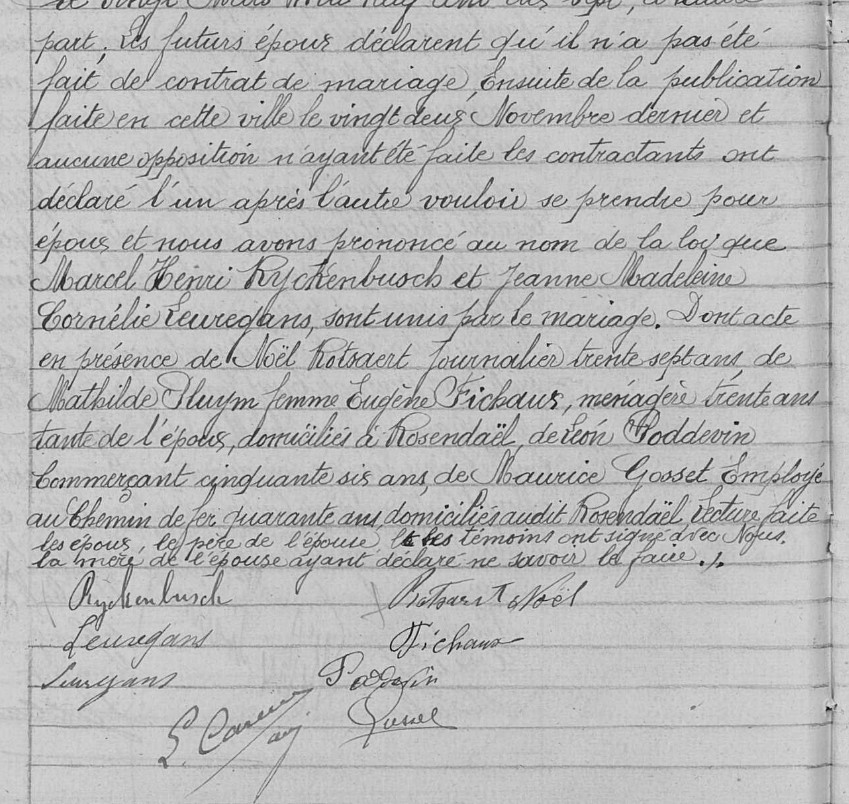 le vingt Mars mil neuf cent dix sept, d'autre
part; Les futurs époux déclarent qu'il n'a pas été
fait de contrat de mariage, Ensuite de la publication
faite en cette ville le vingt deux Novembre dernier et
aucune opposition n'ayant été faite les contractants ont
déclaré l'un après l'autre vouloir se prendre pour
époux et nous avons prononcé au nom de la loi que
Marcel Henri Ryckenbusch et Jeanne Madeleine
Cornélie Leuregans, sont unis par le mariage. Dont acte
en présence de Noël Rotsaert Journalier trente sept ans, de
Mathilde Pluym femme Eugène Fichaux, ménagère trente ans
tante de l'époux, domiciliés à Rosendaël, de Léon Poddevin
Commerçant cinquante six ans, de Maurice Gosset Employé
au Chemin de fer quarante ans, domiciliés audit Rosendaël, Lecture faite
les époux, le père de l'épouse les témoins ont signé avec Nous.
la mère de l'épouse ayant déclaré ne savoir le faire ./.
Ryckenbusch Rotsaert Noël
Leuregans Fichaux
Leuregans Poddevin